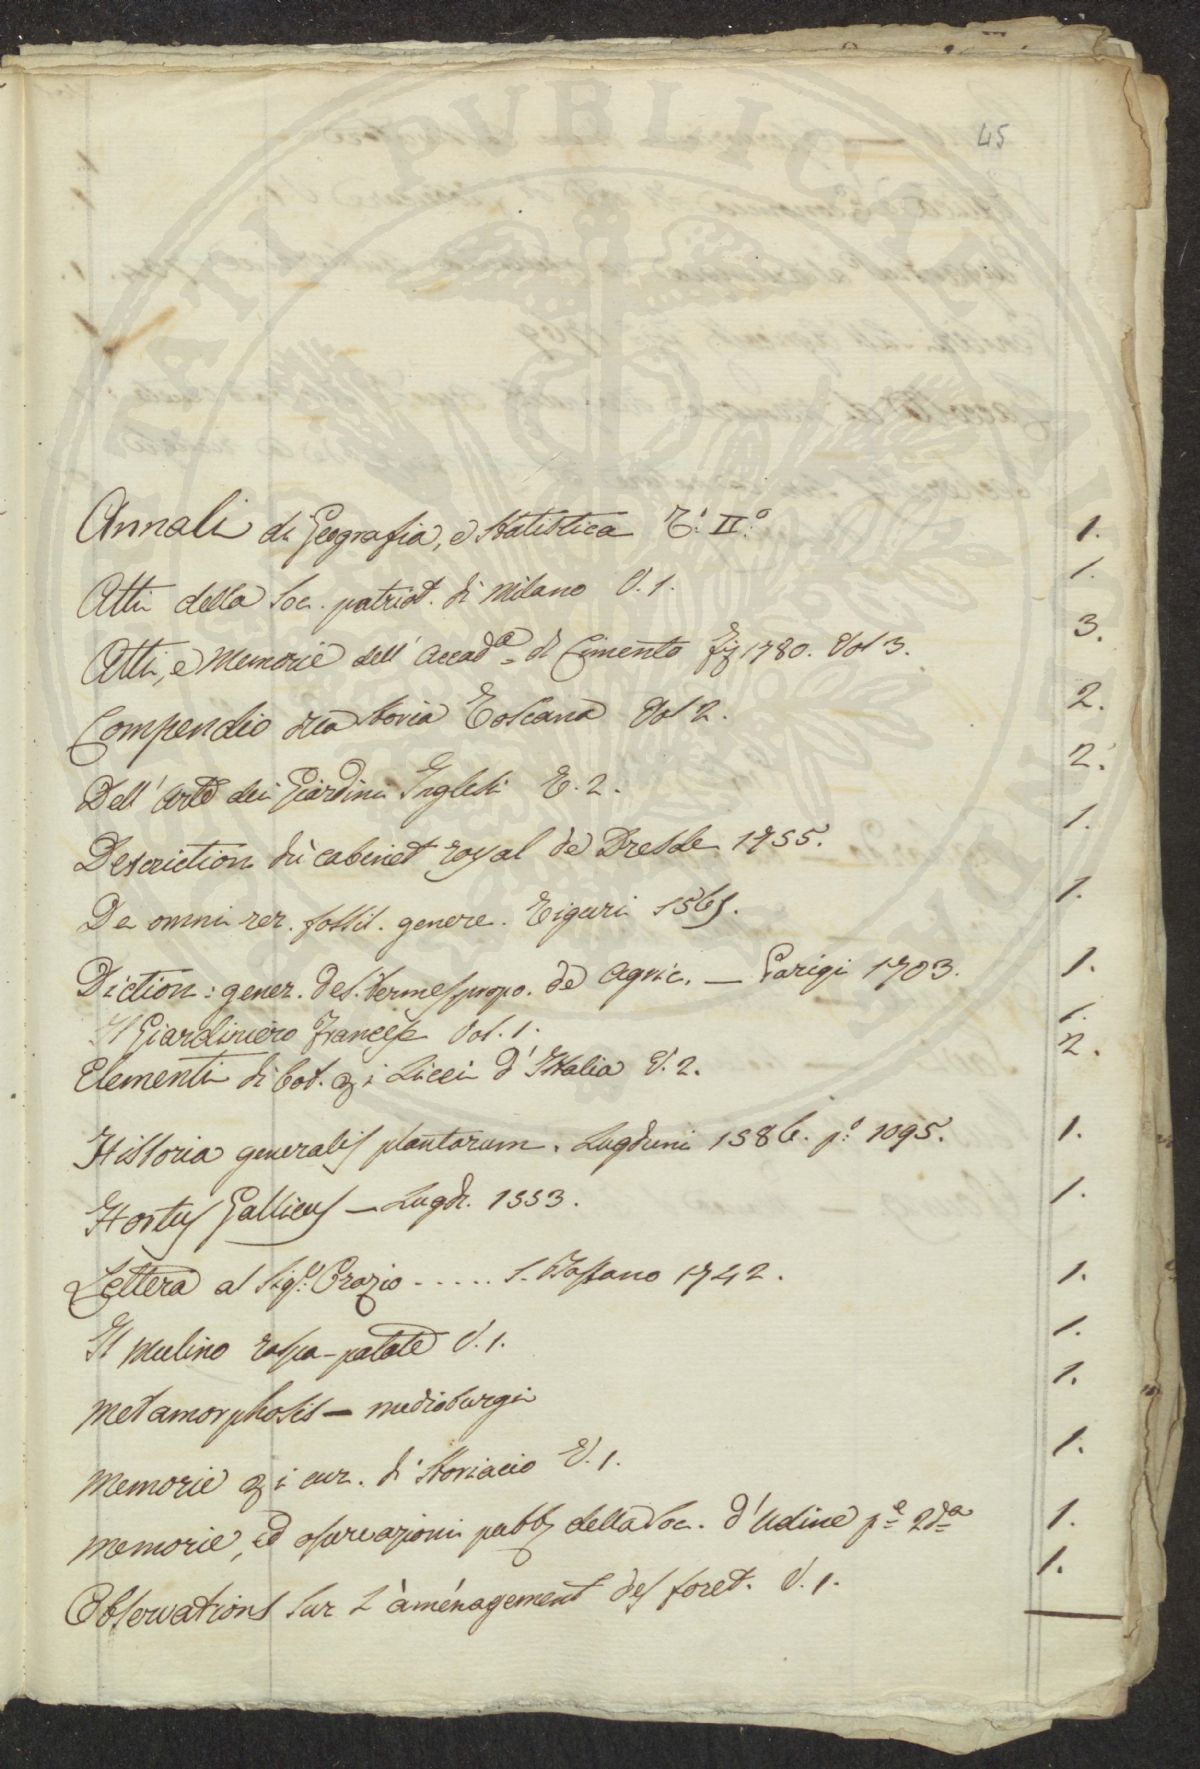 45
Annali di Geografia, e Statistica T. II.º 1.
Atti della Soc. patriot. di Milano V. 1. 1.
Atti, e Memorie dell' Accad.ª di Cimento 1780. Vol 3. 3.
Compendio Storia Toscana Vol 2. 2.
Dell' Arte dei Giardini Inglesi T. 2. 2.
Descriction dù cabinet royal de Dresde 1755. 1.
De omni rer. fossil. genere. Tiguri 1565. 1.
Diction: gener. des. termes propo. de Agric. — Parigi 1703. 1.
Il Giardiniero Francese Vol. 1. 1.
Elementi di bot. i Licei d'Italia V. 2. 2.
Historia generalis plantarum. Lugduni 1586. p.º 1095. 1.
Hortus Gallicus — Lugd. 1553. 1.
Lettera al Sig.r Orazio ..... Bassano 1742. 1.
Il Mulino raspa-patate V. 1. 1.
Metamorphosis — medioburgi 1.
Memorie i cur. di Storiacio V. 1. 1.
Memorie, ed osservazioni pubb. della Soc. d'Udine p.e 2da 1.
Observations sur L'aménagement des foret. V. 1. 1.